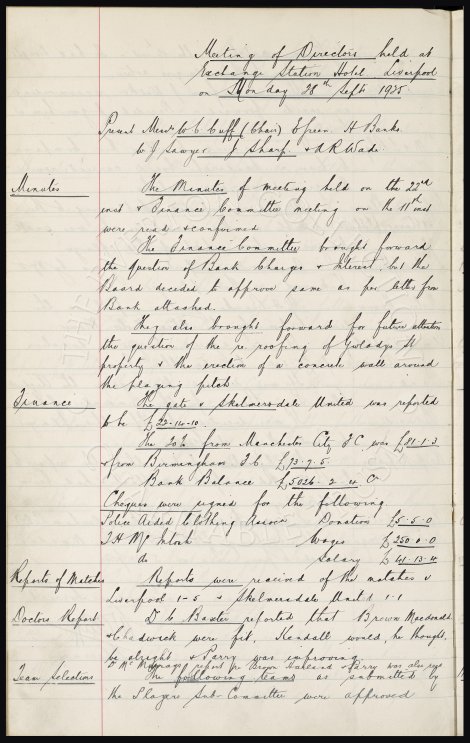 Meeting of Directors held at
Exchange Station Hotel Liverpool
on Monday 28th Sept 1925.
Present Messrs W.C. Cuff (Chair) E Green H Banks
W J Sawyer J Sharp & A R Wade
Minutes
The Minutes of meeting held on the 22nd
inst & Finance Committee meeting on the 11th inst
were read & confirmed
The Finance Committee brought forward
the question of Bank Charges & Interest but the
Board decided to approve same as per letter from
Bank attached.
They also brought forward for future attention
the question of the re roofing of Gwladys St
property & the erection of a concrete wall around
the playing pitch
Finance
The gate v Skelmersdale United was reported
to be £22-14-10.
The 20% from Manchester City F.C. was £81-1-3
& from Birmingham F.C. £73-7-5.
Bank Balance £5026-2-4 Cr
Cheques were signed for the following
Police Aided Clothing Assocn Donation £5-5-0
T.H. McIntosh Wages £250-0-0
do Salary £41-13-4
Reports of Matches
Reports were received of the matches v
Liverpool 1-5 & Skelmersdale United 1-1
Doctors Report
Dr Baxter reported that Brown Macdonald
& Chadwick were fit, Kendall would, he thought,
be alright & Parry was improving
Mr report re Brown & Parry was also read
Team Selections
The following teams as submitted by
the Players Sub-Committee were approved